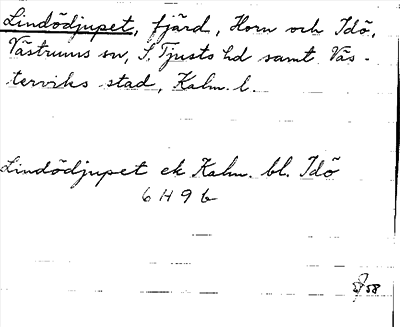 Lindödjupet, fjärd, Horn och Idö,
Västrums sn, S. Tjusts hd samt Väs-
terviks stad, Kalm. l.
Lindödjupet ek Kalm. bl. Idö
6 H 9 b
58